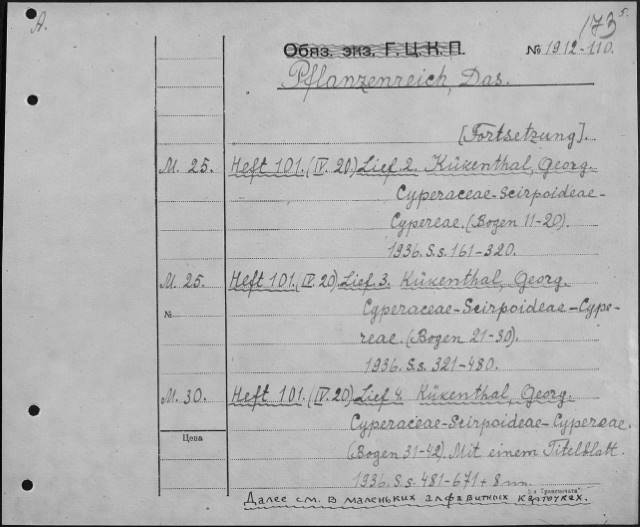 A.
173 5.
Обяз. экз. Г.Ц.К.П. № 1912-110.
Pflanzenreich, Das.
[Fortsetzung].
M. 25. Heft 101. (IV. 20) Lief 2. Kükenthal, Georg.
Cyperaceae-Scirpoideae-
Cypereae. (Bogen 11-20).
1936. S.s. 161-320.
M. 25. Heft 101. (IV. 20) Lief 3. Kükenthal, Georg.
№ Cyperaceae-Scirpoideae-Cype-
reae. (Bogen 21-30).
1936. S.s. 321-480.
M. 30. Heft 101. (IV. 20) Lief 4. Kükenthal, Georg.
Cyperaceae-Scirpoideae-Cypereae.
Цена
(Bogen 31-42). Mit einem Titelblatt.
1936. S.s. 481-671 + 8
Далее см. в маленьких алфавитных карточках.